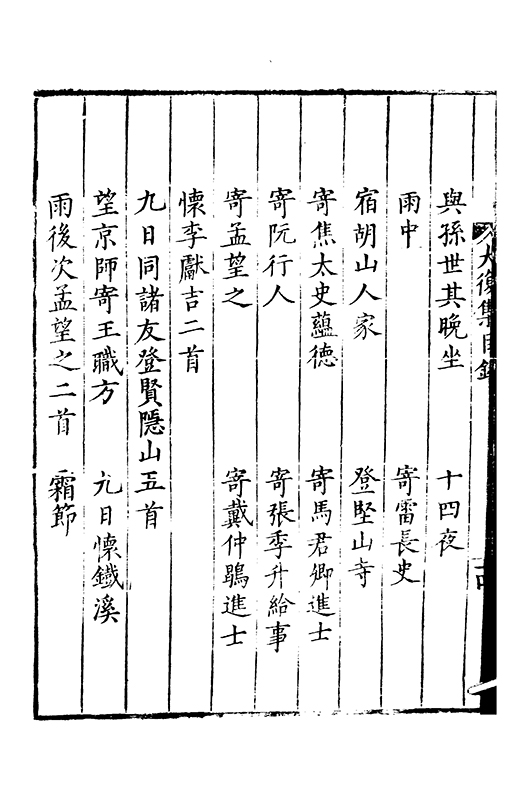 大復集目錄
十四
與孫世其晚坐　十四夜
雨中　寄雷長史
宿胡山人家　登堅山寺
寄焦太史蘊德　寄馬君卿進士
寄阮行人　寄張季升給事
寄孟望之　寄戴仲鶡進士
懷李獻吉二首
九日同諸友登賢隱山五首
望京師寄王職方　九日懷鐵溪
雨後次孟望之二首　霜節